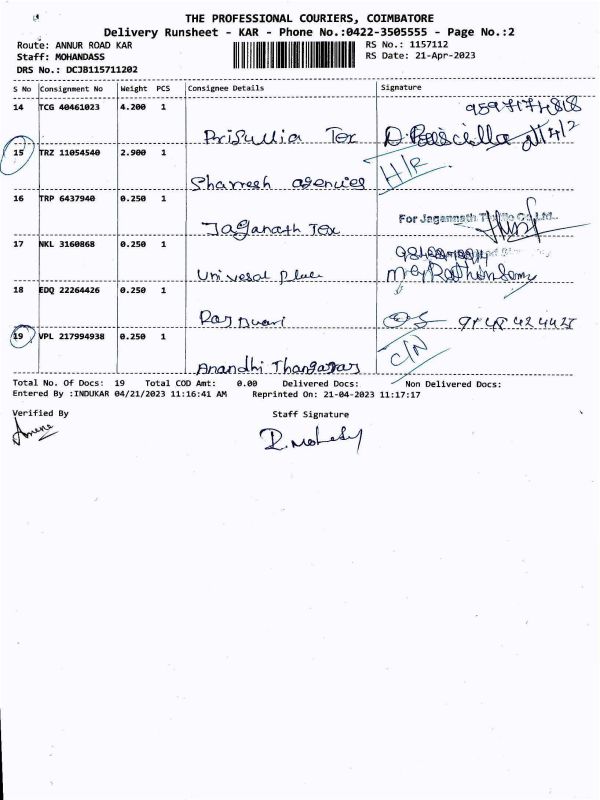 THE PROFESSIONAL COURIERS, COIMBATORE
Delivery Runsheet - KAR - Phone No.:0422-3505555 - Page No.:2
Route: ANNUR ROAD KAR RS No.: 1157112
Staff: MOHANDASS RS Date: 21-Apr-2023
DRS No.: DCJB115711202
S No Consignment No Weight PCS Consignee Details Signature
14 TCG 40461023 4.200 1
Prisullia Tex
15 TRZ 11054540 2.900 1 H/R
Sharresh agencies
16 TRP 6437940 0.250 1 For Jagannath Textile Co. Ltd..
Jaganath Tex
17 NKL 3160868 0.250 1
Univesal place
18 EDQ 22264426 0.250 1
19 VPL 217994938 0.250 1 C/N
Anandhi
Total No. Of Docs: 19 Total COD Amt: 0.00 Delivered Docs: Non Delivered Docs:
Entered By :INDUKAR 04/21/2023 11:16:41 AM Reprinted On: 21-04-2023 11:17:17
Verified By Staff Signature